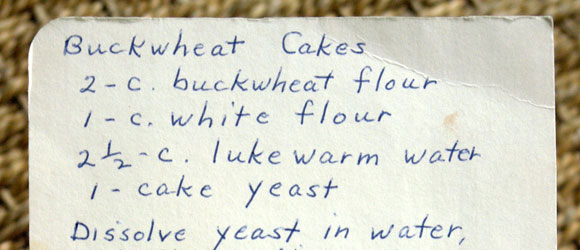 Buckwheat Cakes
2-c. buckwheat flour
1-c. white flour
2½-c. lukewarm water
1-cake yeast
Dissolve yeast in water,